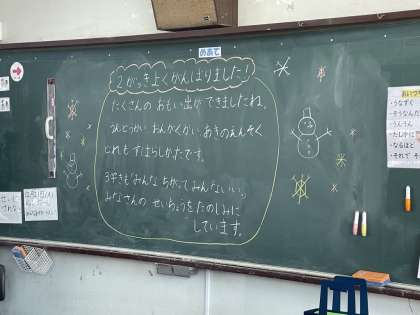 めあて
2がっき よくがんばりました!
たくさんの おもい出ができましたね。
うんどうかい おんがくかい あきのえんそく
どれも すばらしかったです。
3学きも「みんなちがってみんないい」
みなさんの せいちょうをたのしみに
しています。
・うなずく
・なるほど
・それで